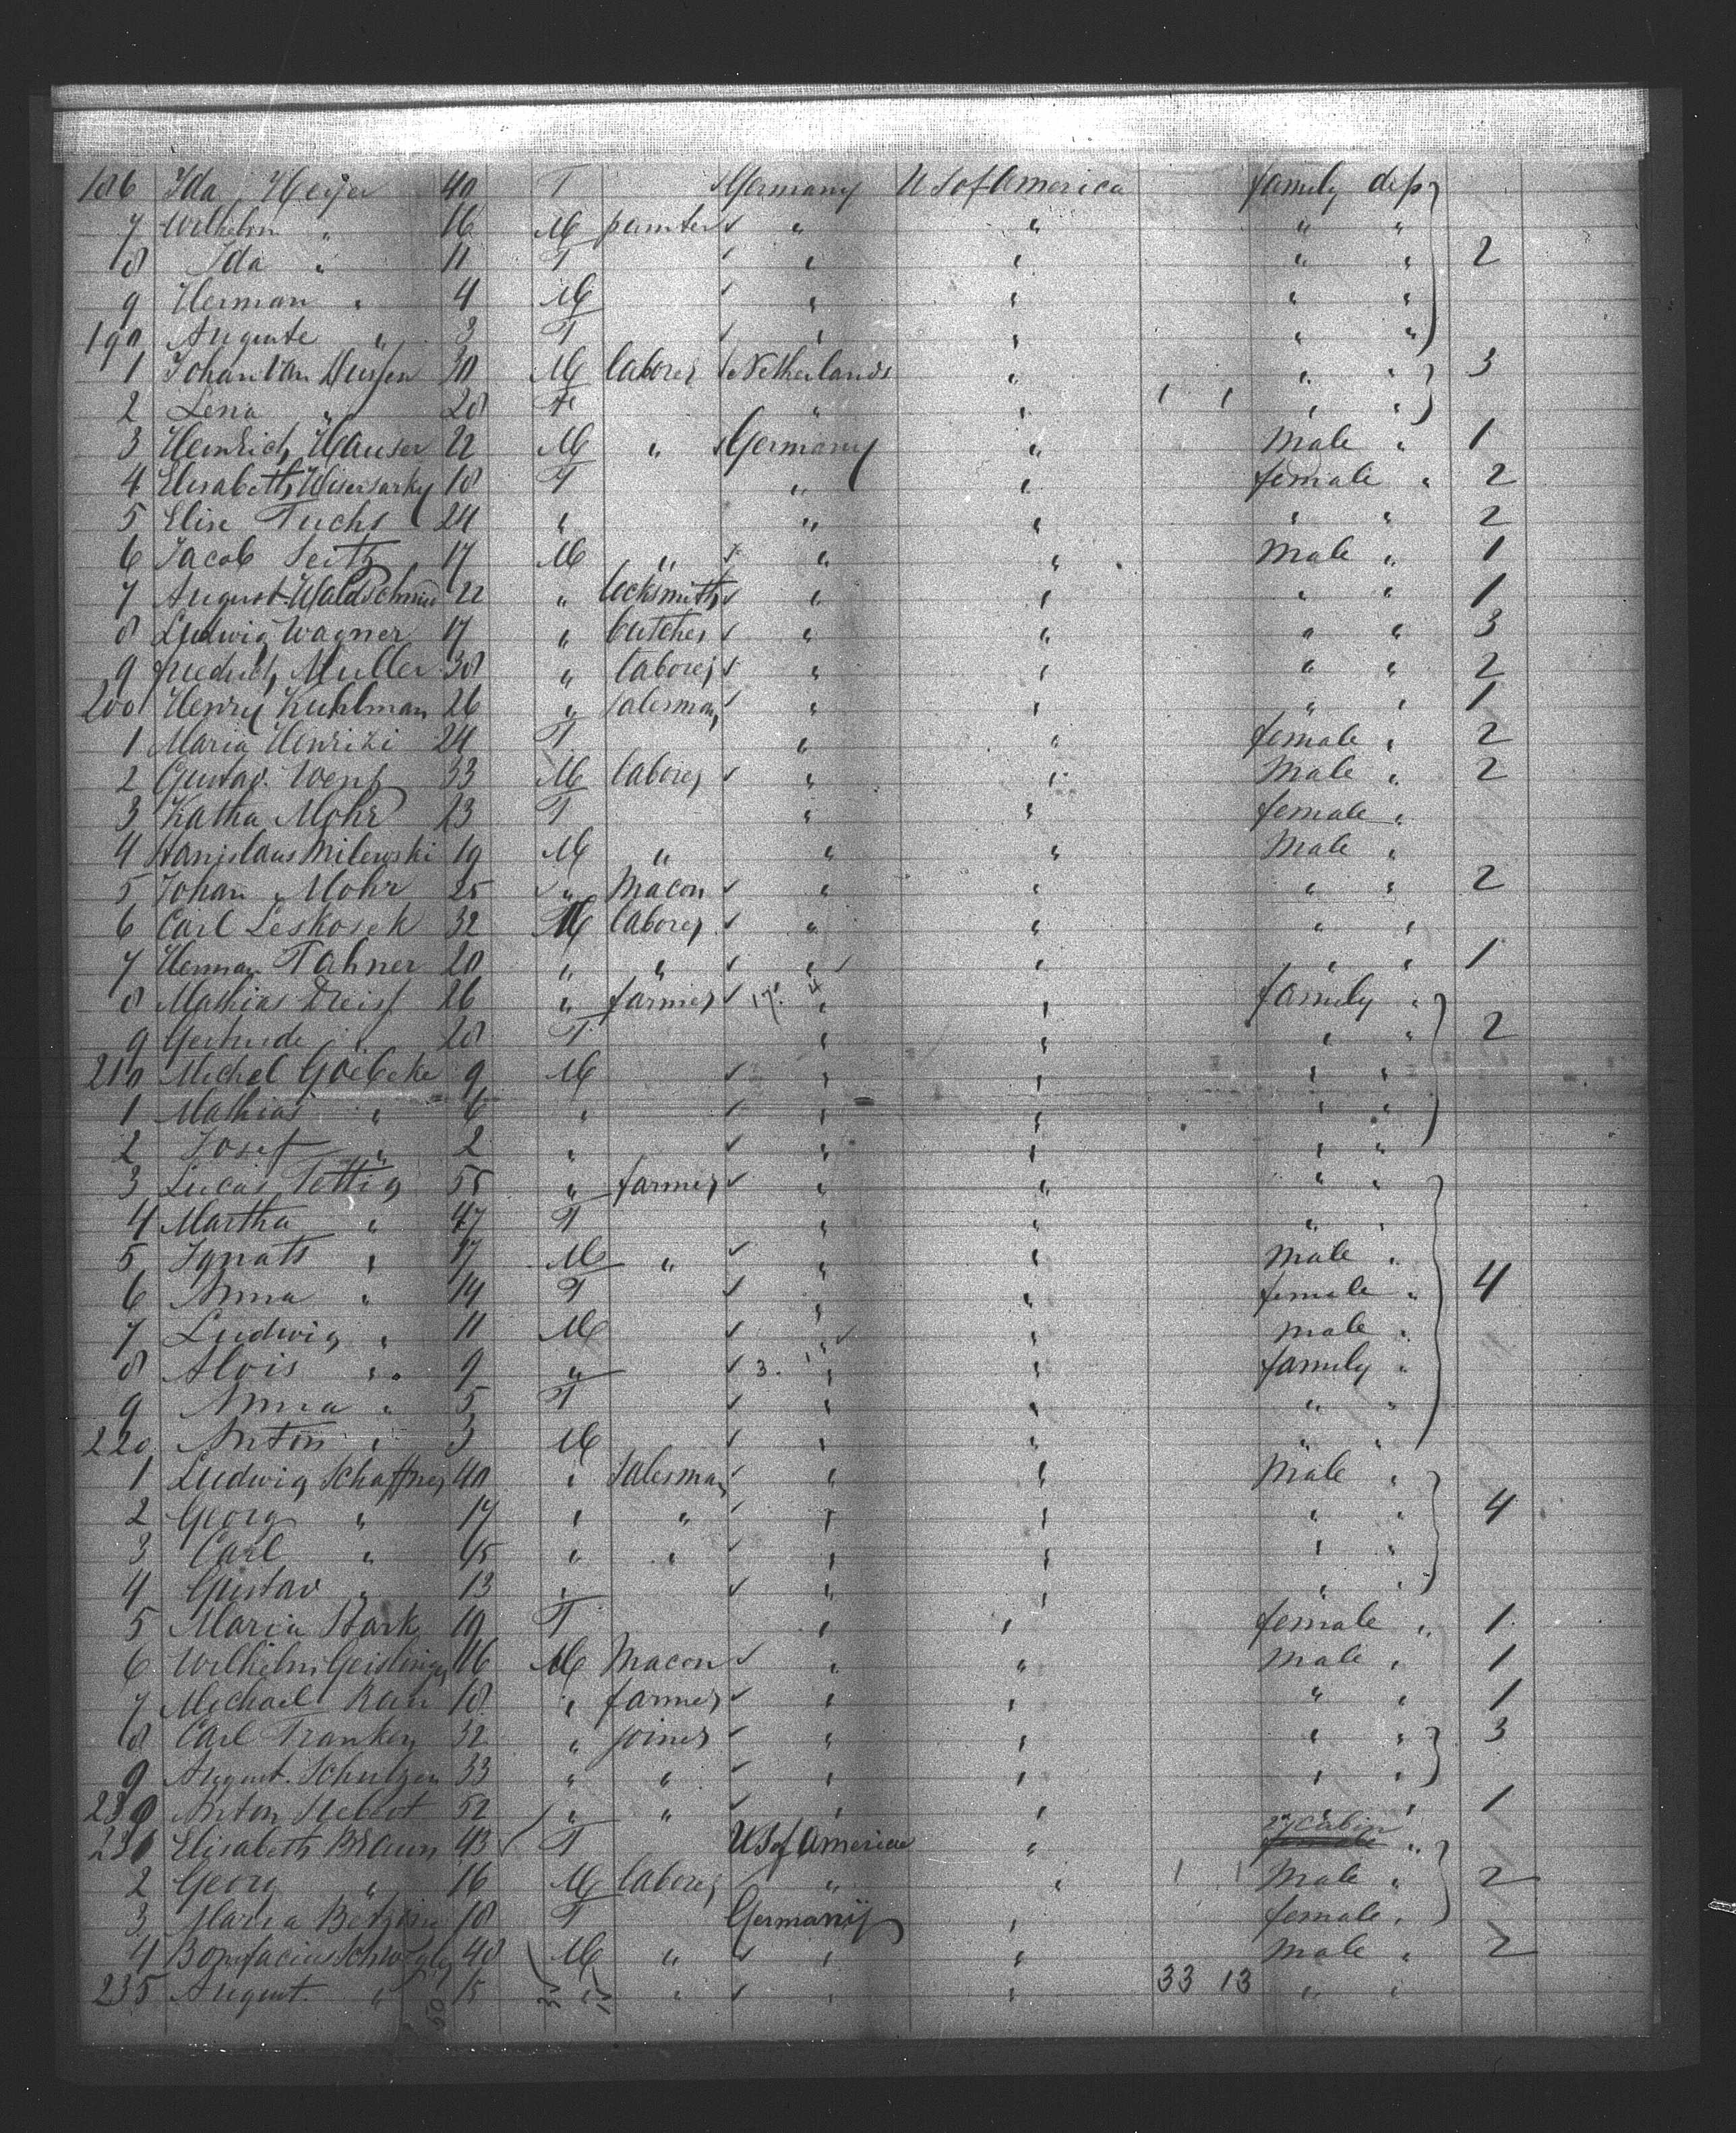 186 Ida Heyer 40 F Germany US of America family dep
7 Wilhelm " 16 M painter " " " "
8 Ida " 11 F " " " " 2
9 Herman " 4 M " " " "
190 Auguste " 3 F " " " "
1 Johan van 30 M laborer Netherlands " " " 3
2 Lena " 28 F " " 1 1 " "
3 Heinrich Hauser 22 M " Germany " Male " 1
4 Elisabeth 18 F " " female " 2
5 Elise Fuchs 24 " " " " " 2
6 Jacob Seitz 17 M " " " Male " 1
7 August Waldschmid 22 " locksmith " " " " 1
8 Ludwig Wagner 17 " butcher " " " " 3
9 Friedrich Muller 38 " laborer " " " " 2
200 Henry Kuhlman 26 " salesman " " " " 1
1 Maria Henrizi 24 F " " female " 2
2 Gustav 33 M laborer " " Male " 2
3 Katha Mohr 23 F " " female "
4 Stanislaus Milewski 19 M " " " Male "
5 Johan Mohr 25 " Macon " " " " 2
6 Carl Leskosek 32 M laborer " " " "
7 Herman Fahner 20 " " " " " " 1
8 Mathias 26 " farmer " " family "
9 Gertrude " 28 F " " " " 2
210 Michel Goebeke 9 M " " " "
1 Mathias " 6 " " " " "
2 Josef " 2 " " " " "
3 Lucas Fettig 55 " farmer " " " "
4 Martha " 47 F " " " "
5 Ignatz " 17 M " " " male "
6 Anna " 14 F " " female " 4
7 Ludwig " 11 M " " male "
8 Alois " 9 " 3. " " family "
9 Anna " 5 F " " " "
220 Anton " 3 M " " " "
1 Ludwig Schaffner 40 " salesman " " Male "
2 Georg " 17 " " " " " " 4
3 Carl " 15 " " " " " "
4 Gustav " 13 " " " " "
5 Maria Stark 19 F " " female " 1
6 Wilhelm Geislinger 16 M Macon " " Male " 1
7 Michael Rau 18 " farmer " " " " 1
8 Carl Franken 32 " joiner " " " " 3
9 August Schulzen 33 " " " " " "
230 Anton 52 " " " " " " 1
231 Elisabeth Braun 43 F US of America " 2d Cabin "
2 Georg " 16 M laborer " " 1 1 Male " 2
3 Maria 18 F Germany " female "
4 Bonifacius 48 M " " " Male " 2
235 August " 15 " " " " 33 13 " "